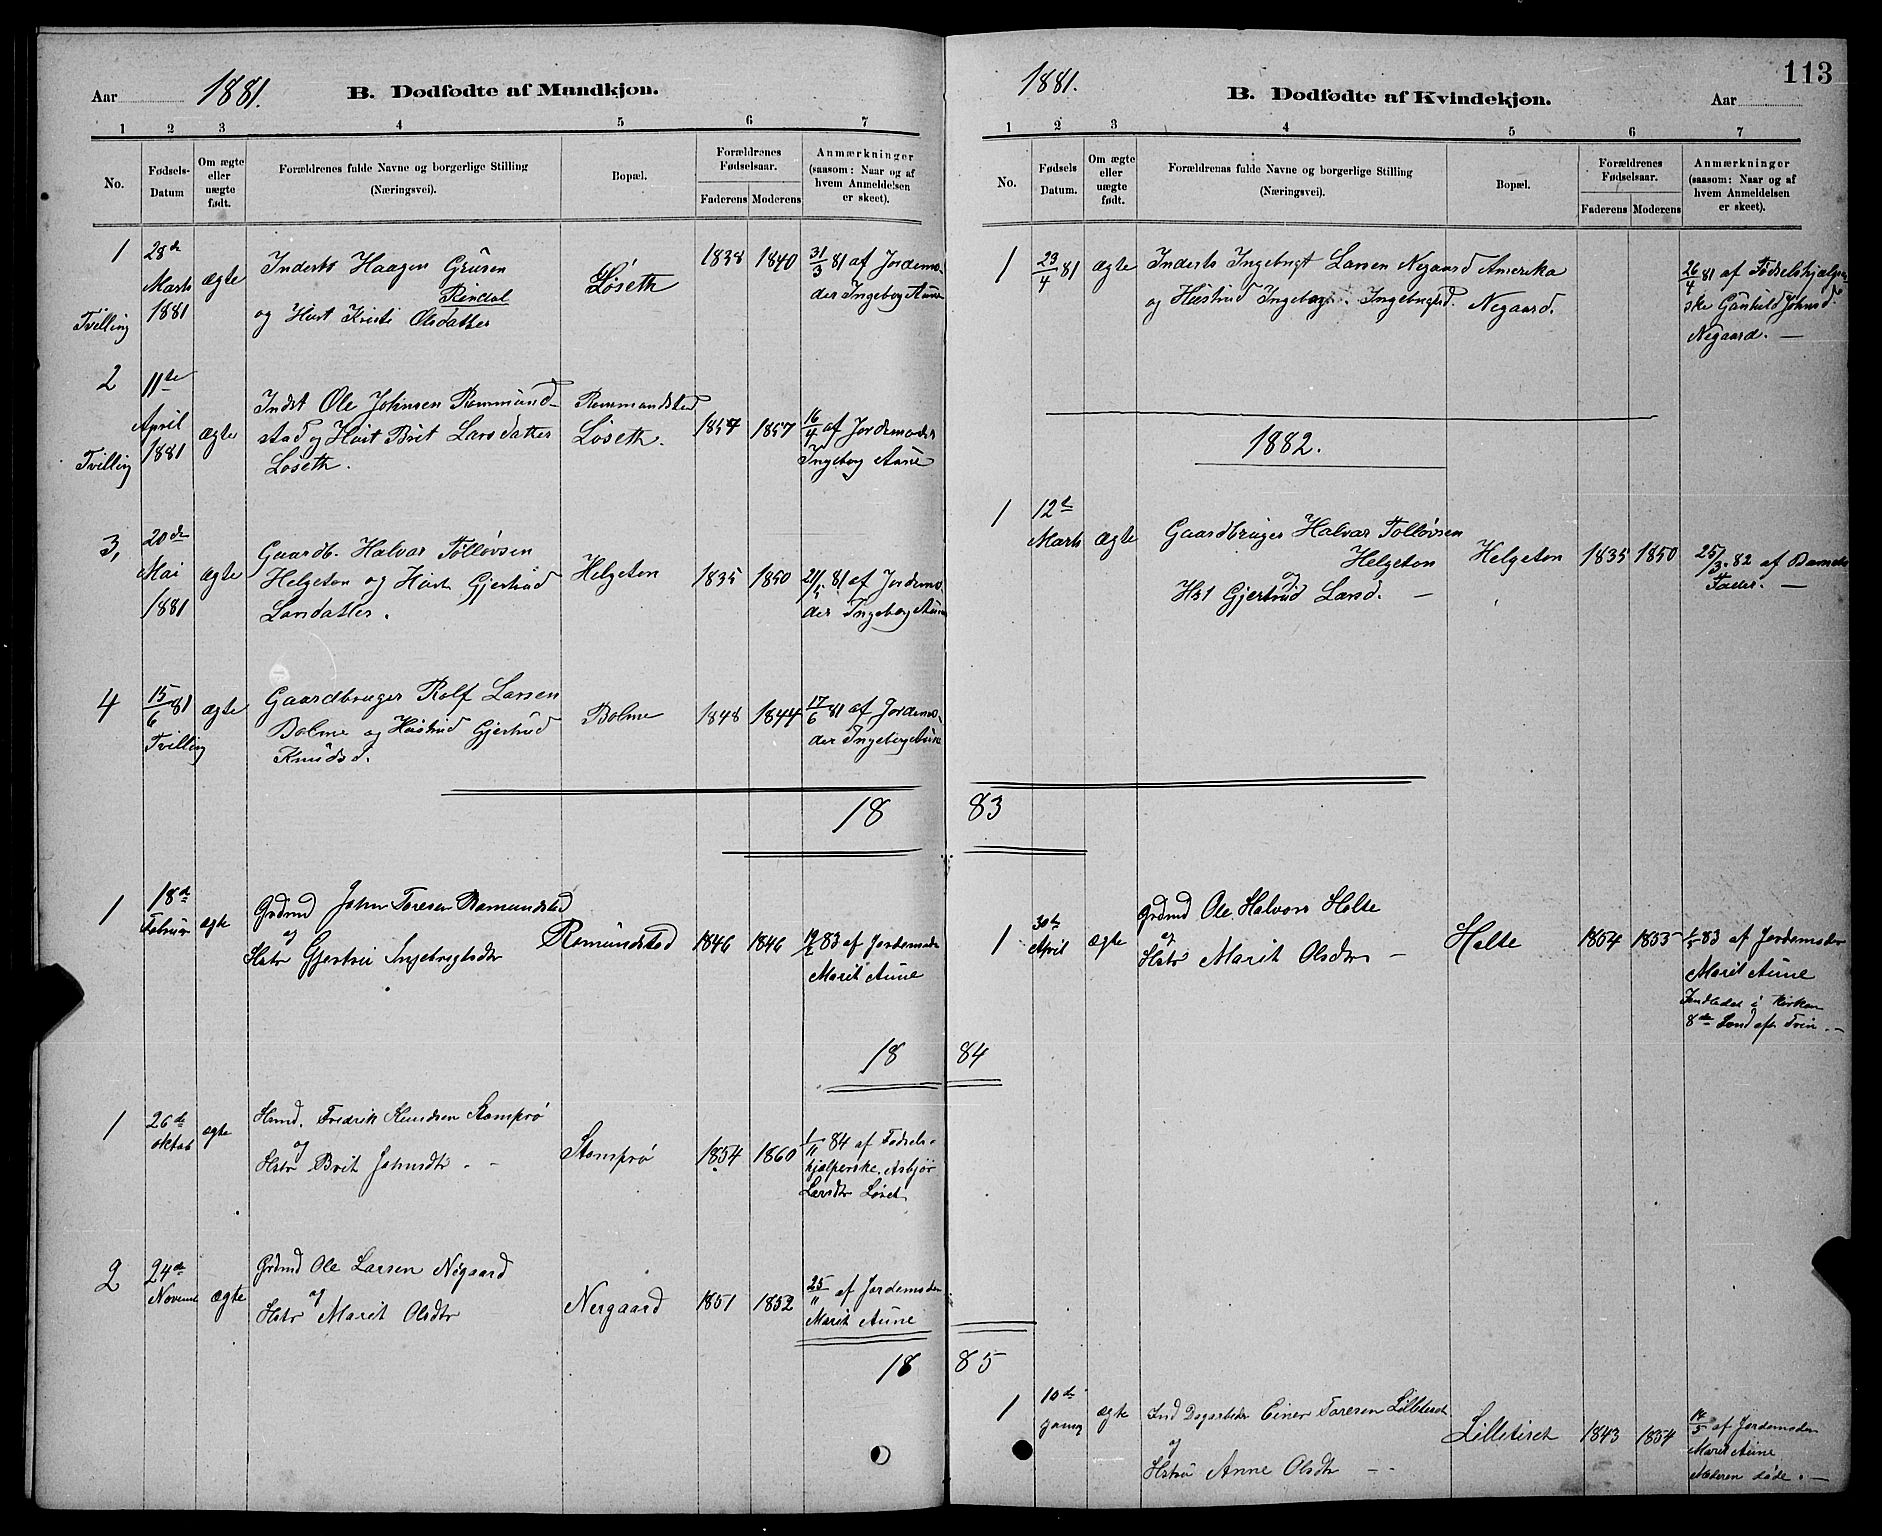 Aar 1881. B. Dødfødte af Mandkjøn.
1 2 3 4 5 6 7
No.
Fødsels-
Datum
Om ægte
eller
uægte
født.
Forældrenes fulde Navne og borgerlige Stilling
(Næringsvei).
Bopæl.
Forældrenes
Fødselsaar.
Faderens Moderens
Anmærkninger
(saasom: Naar og af
hvem Anmeldelsen
er skeet).
1
Tvilling
28de
Marts
1881
ægte
Inderst Haagen
Rindal
og Hust Kristi Olsdatter
Løseth
1838 1840
31/3 81 af Jordemo-
der Ingeborg Aune
2
Tvilling
11te
April
1881
ægte
Indst Ole Johnsen Rommund-
stad og Hust Brit Larsdatter
Løseth.
Rommundstad
Løseth.
1854 1857
16/4 af Jordemoder
Ingeborg Aune
3,
20de
Mai
1881
ægte
Gaardb. Halvar Tølløvsen
Helgeton og Hust Gjertrud
Larsdatter.
Helgeton
1835 1850
21/5 81 af Jordemo-
der Ingeborg Aune
4
15/6 81
Tvilling
ægte
Gaardbruger Rolf Larsen
Bolme og Hustrud Gjertrud
Knudsd.
Bolme
1848 1844
17/6 81 af Jordemo-
der Ingeborg Aune
18
1
18de
Februar
ægte
Grdmd John Toresen Romundstad
og
Hstr Gjertrud Ingebrigtsdtr
Romundstad
1846 1846
19/2 83 af Jordemoder
Marit Aune
18
1
26de
oktob
ægte
Hsmd. Fredrik Knudsen Stomprø
og
Hstr Brit Johnsdtr. -
Stomprø
1854 1860
1/11 84 af Fødsels-
hjælperske, Asbjør
Larsdtr Løset
2
24de
Novemb
ægte
Grdmd Ole Larsen Negaard
og
Hstr Marit Olsdtr
Nergaard
1851 1852
25/11 af Jordemoder
Marit Aune
18
1881. B. Dødfødte af Kvindekjøn. Aar
113
1 2 3 4 5 6 7
No.
Fødsels
Datum.
Om ægte
eller
uægte
født.
Forældrenes fulde Navne og borgerlige Stilling
(Næringsvei).
Bopæl.
Forældrenes
Fødselsaar.
Faderens Moderens
Anmærkninger
(saasom: Naar og af
hvem Anmeldelsen
er skeet).
1
23/4 81
ægte
Inderts Ingebrigt Larsen Negaard
og Hustrud Ingeborg Ingebrigtsd.
Amerika
Negaard.
26/4 81 af Fødselshjælper-
ske Gunhild Johnsd.
Negaard. —
1882.
1
12te
Marts
ægte
Gaardbruger Halvar Tølløvsen
Helgeton
og
Hst Gjertrud Larsd. —
Helgeton
1835 1850
25/3. 82 af Barnets
Fader. —
83
1
30te
April
ægte
Grdmd Ole Halvors Holte
og
Hstr Marit Olsdtr —
Holte
1854 1855
1/5 83 af Jordemoder
Marit Aune
Indledet i Kirken
8de Sønd aft Trin. —
84
85
1
10de
ægte
Ind Dagarbeider Einer Toresen Lilletiset
og
Hstr Anne Olsdtr —
Lilletiset
1843 1854
14/5 af Jordemoder
Marit Aune
Moderen døde. —